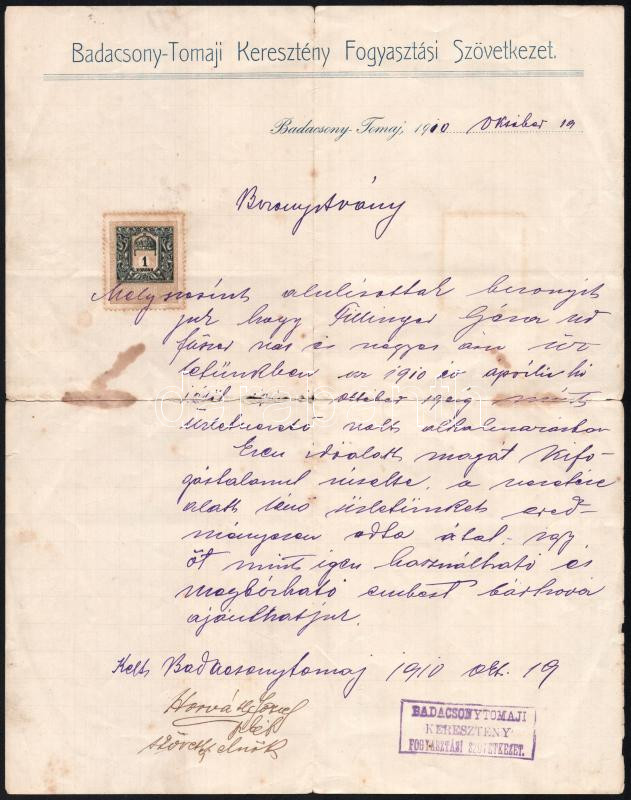 Badacsony-Tomaji Keresztény Fogyasztási Szövetkezet.
Badacsony-Tomaj, 1910 Oktober 19
Bizonyitvány
1
Mely szerint alulirottak bizonyit
juk hogy Fillinger Géza úr
füszer vas és vegyes áru üz
letünkben az 1910 év április hó
október 19éig mint
üzletvezető volt alkalmazásban
Ezen idő alatt magát kifo-
gástalanul viselte, a vezetése
alatt lévő üzletünket ered-
ményesen adta által, igy
őt mint igen használható és
megbizható embert bárhová
ajánlhatjuk.
Kelt Badacsonytomaj 1910 okt. 19
Horváth József
szövetk. elnök
BADACSONYTOMAJI
KERESZTÉNY
FOGYASZTÁSI SZÖVETKEZET.